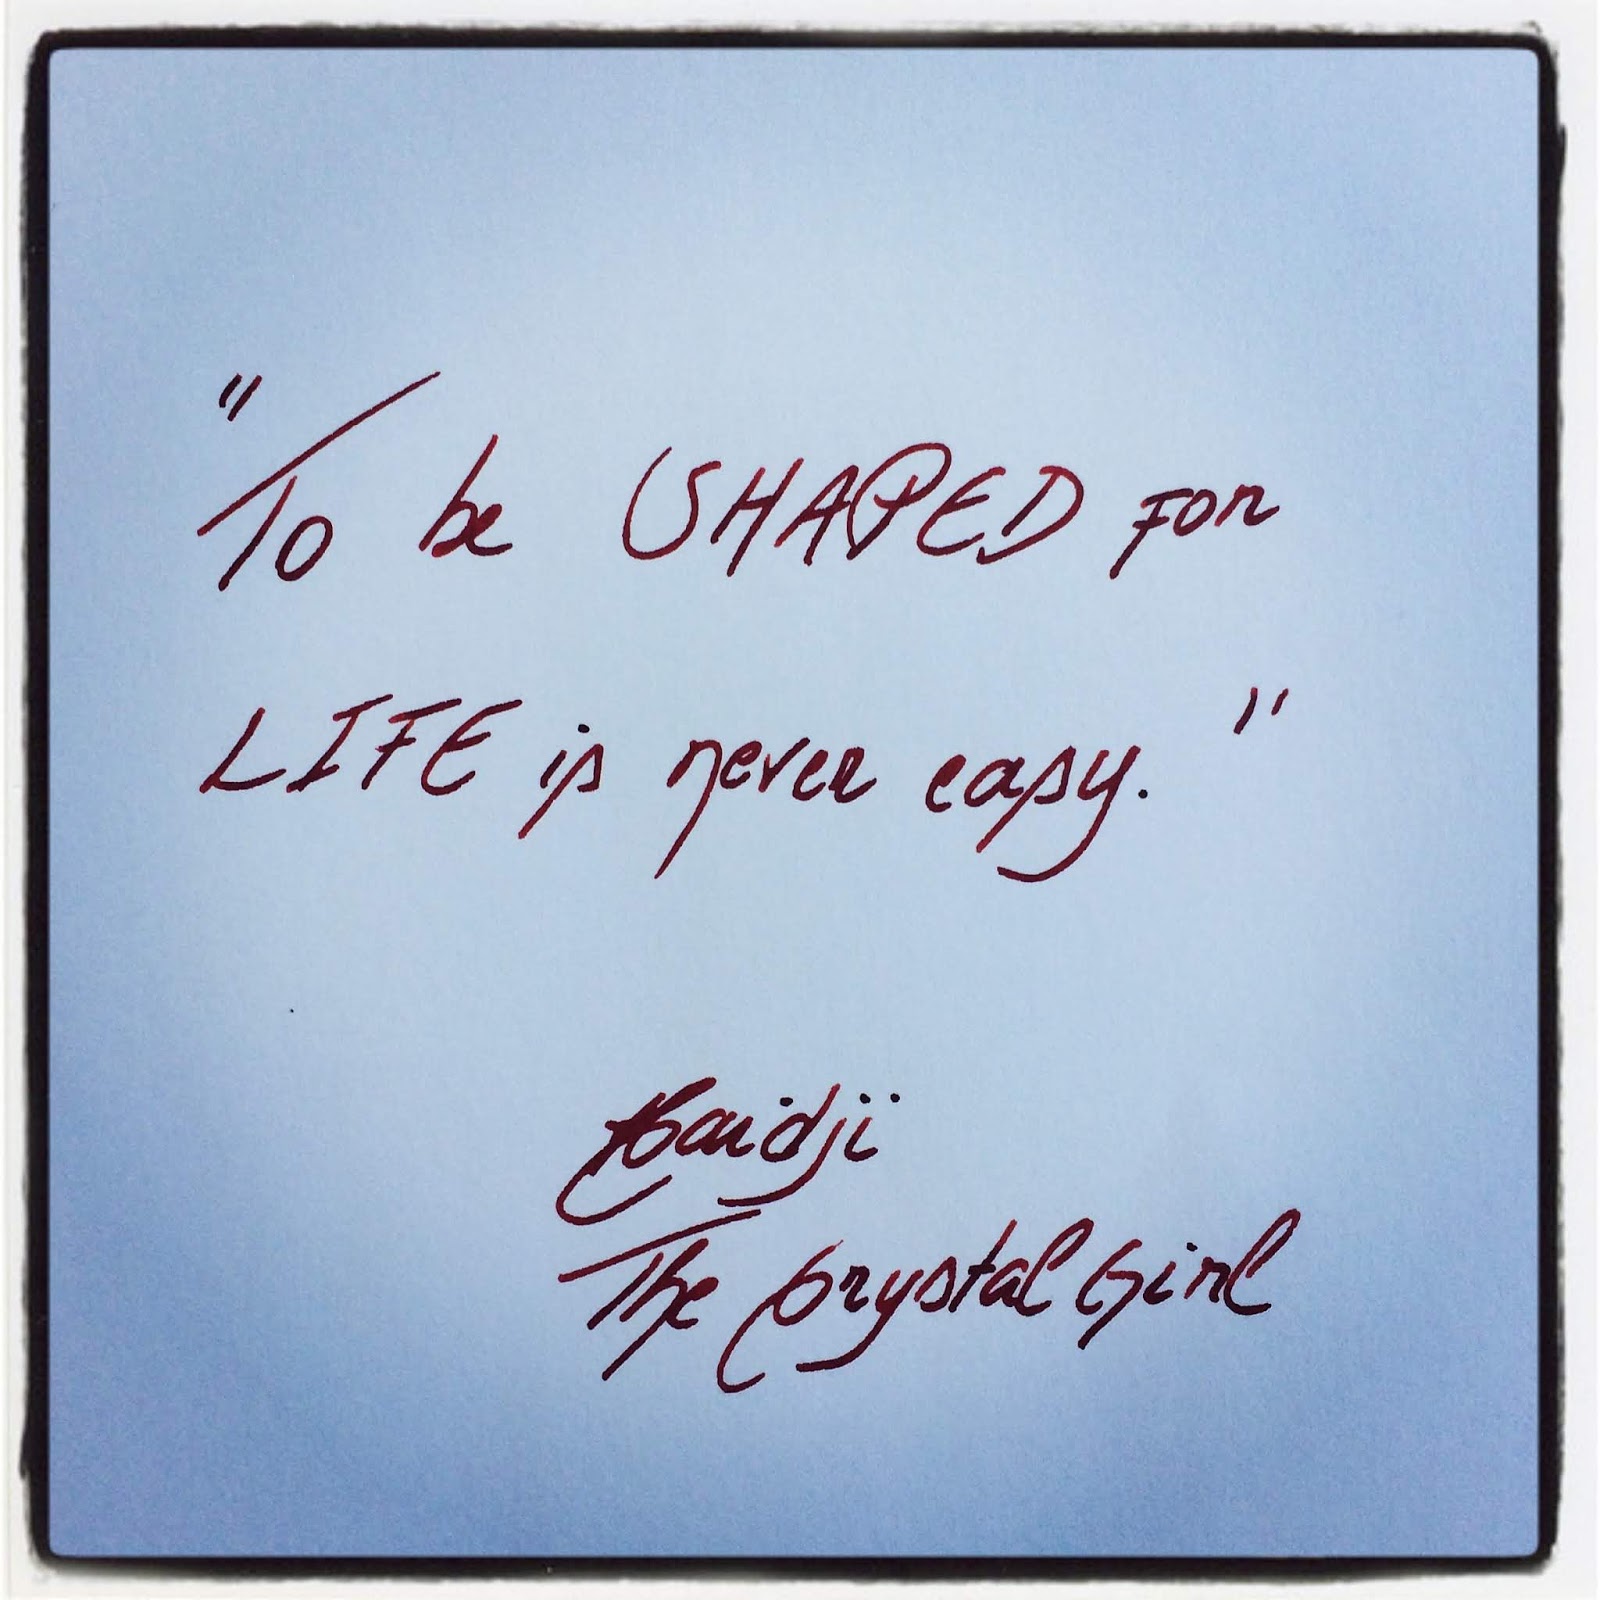 "To be SHAPED for
LIFE is never easy."
Haidji
The Crystal Girl